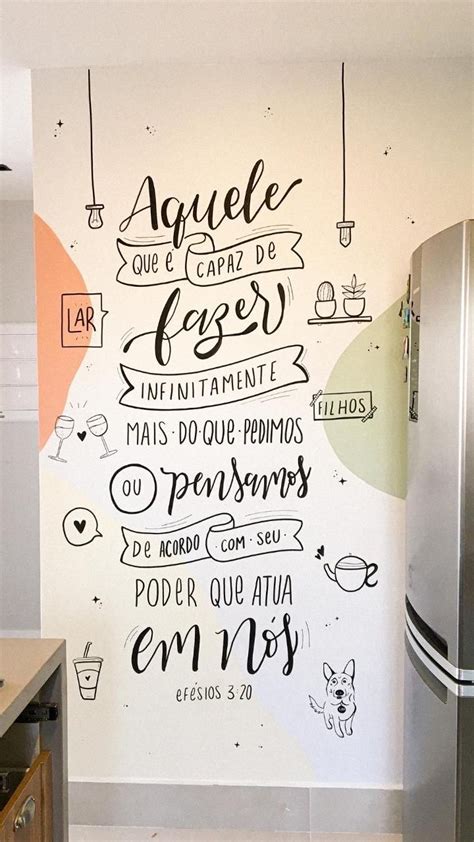 Aquele
QUE É CAPAZ DE
fazer
LAR
INFINITAMENTE
FILHOS
MAIS·DO·QUE·PEDIMOS
OU pensamos
DE ACORDO COM SEU
PODER QUE ATUA
em nós
EFÉSIOS 3:20